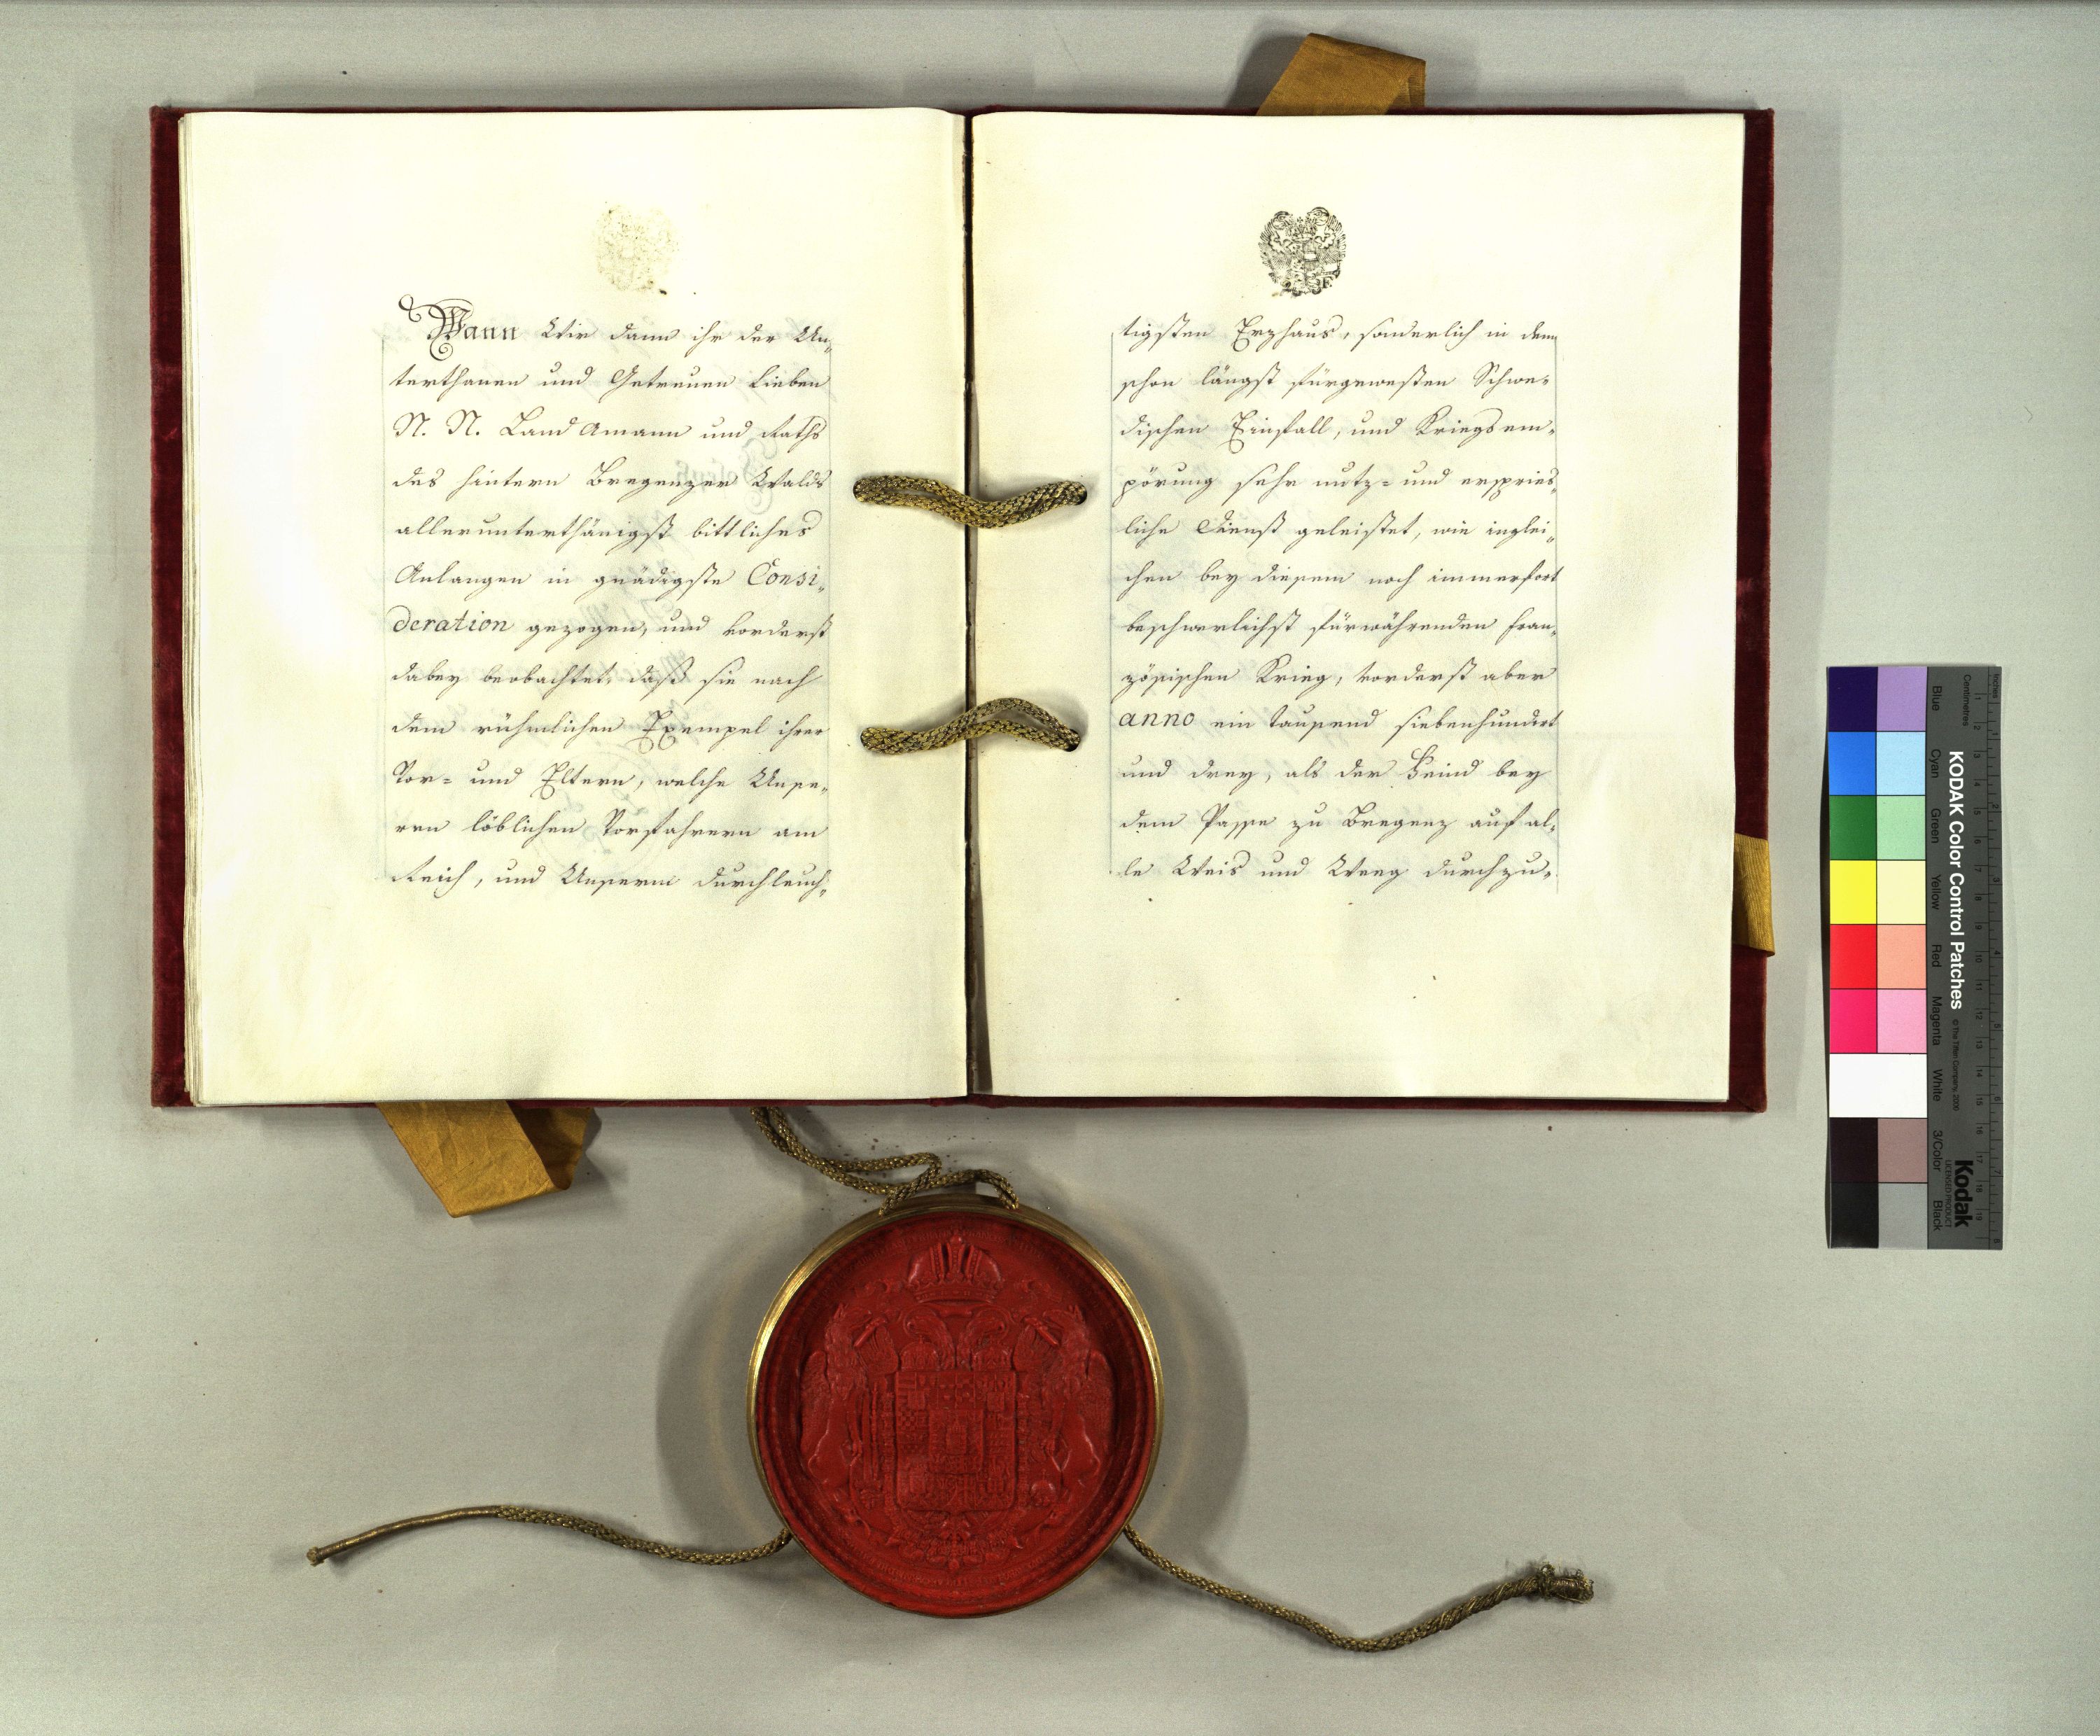 Wann Wir dann ihr der Un„
terthanen und Getreuen Lieben
N. N. Land Amann und Raths
des hintern Bregenzer Walds
allerunterthänigst bittliches
Anlangen in gnädigste Consi„
deration gezogen, und vorderst
dabey beobachtet, daß sie nach
dem rühmlichen Exempel ihrer
Vor= und Eltern, welche Unse„
ren löblichen Vorfahrern am
Reich, und Unserm durchleuch„
tigsten Erzhaus, sonderlich in dem
schon längst fürgewesten Schwe„
dischen Einfall, und Kriegsem„
pörung sehr nutz= und erspries„
liche Dienst geleistet, wie inglei„
chen bey diesem noch immerfort
beschwerlichst fürwährenden fran„
zösischen Krieg, vorderst aber
anno ein tausend siebenhundert
und drey, als der Feind bey
dem Passe zu Bregenz auf al„
le Weis und Weeg durchzu„
KODAK Color Control Patches
© The Tiffen Company, 2000
Kodak
LICENSED PRODUCT
Inches
Centimetres
Blue
Cyan
Green
Yellow
Red
Magenta
White
3/Color
Black